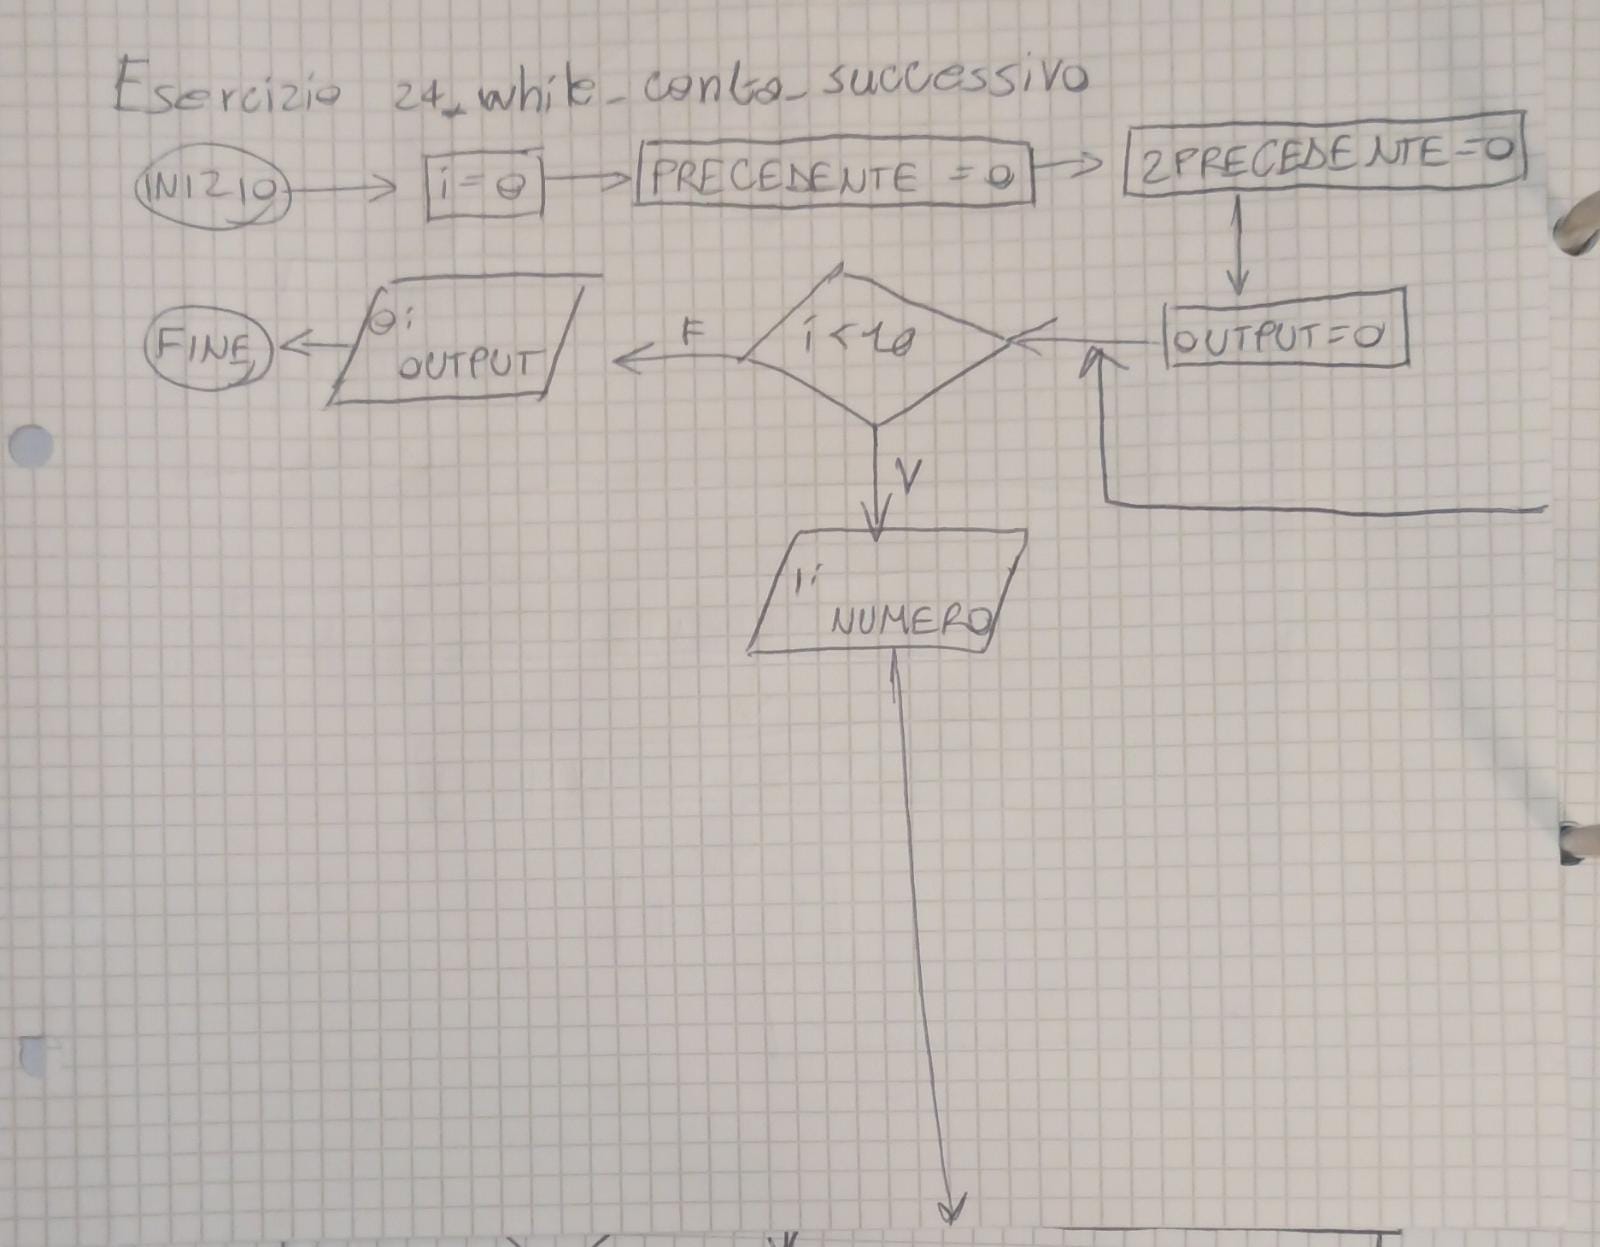 Esercizio 24_while_conta_successivo
INIZIO
i = 0
PRECEDENTE = 0
2PRECEDENTE = 0
FINE
O:
OUTPUT
F
i < 10
OUTPUT = 0
V
I:
NUMERO